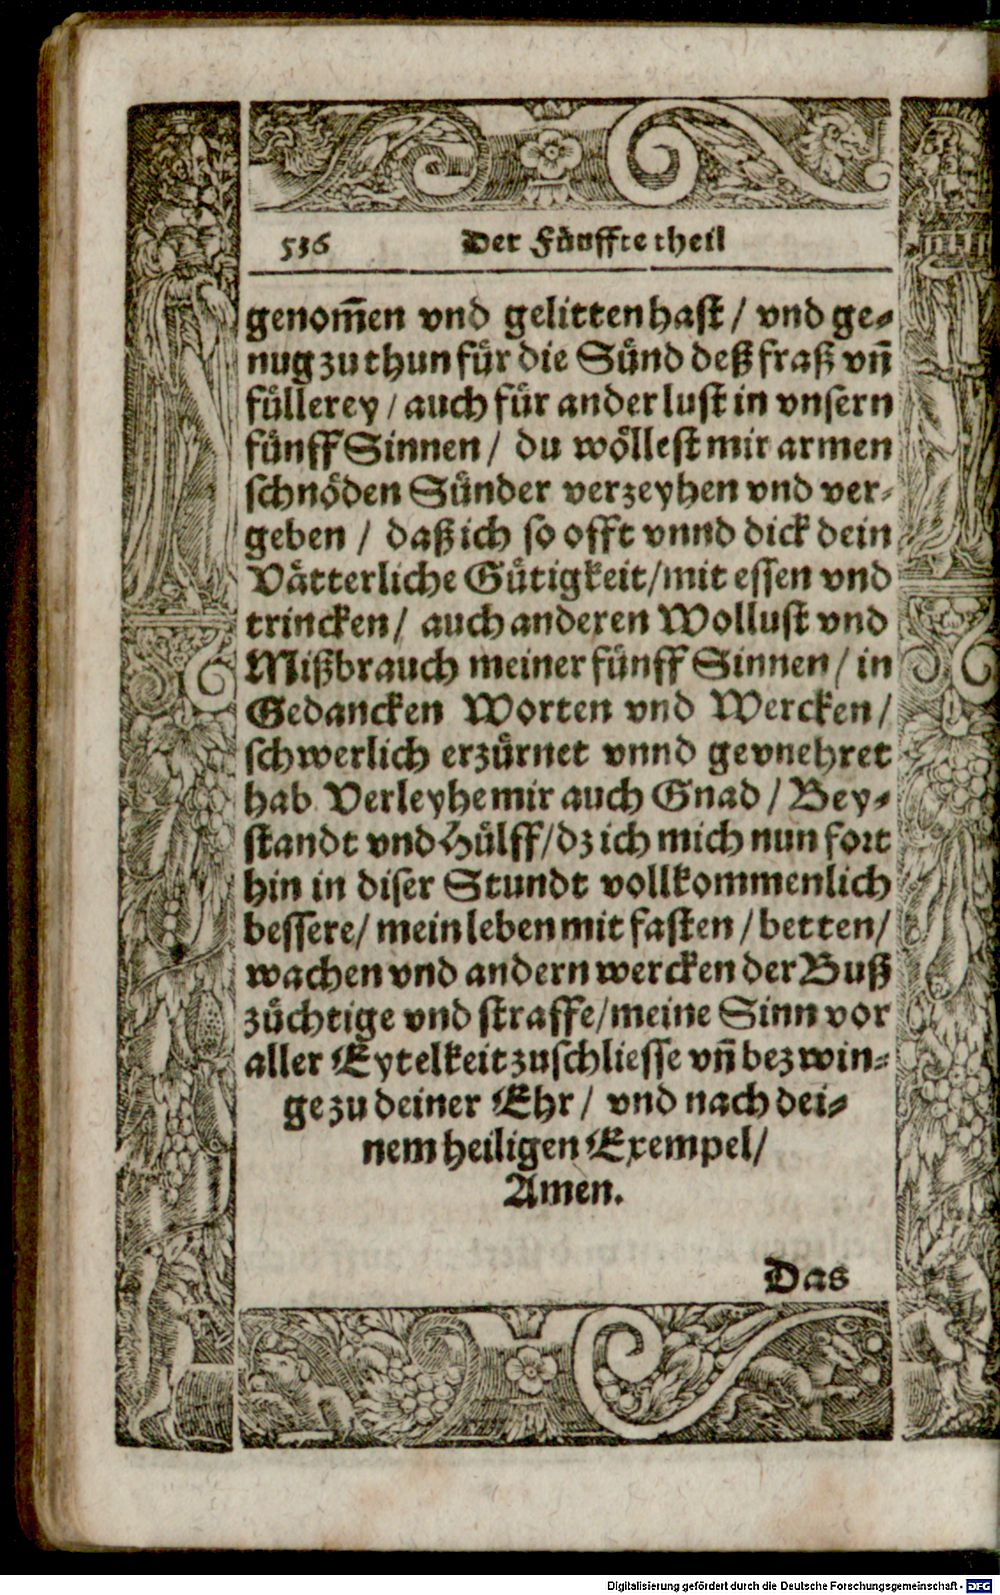 536 Der Fünffte theil
genom̃en vnd gelitten hast / vnd ge-
nug zu thun für die Sünd deß fraß vñ
füllerey / auch für ander lust in vnsern
fünff Sinnen / du wöllest mir armen
schnöden Sünder verzeyhen vnd ver-
geben / daß ich so offt vnnd dick dein
Vätterliche Gütigkeit / mit essen vnd
trincken / auch anderen Wollust vnd
Mißbrauch meiner fünff Sinnen / in
Gedancken Worten vnd Wercken /
schwerlich erzürnet vnnd gevnehret
hab Verleyhe mir auch Gnad / Bey-
standt vnd Hülff / dz ich mich nun fort
hin in diser Stundt vollkommenlich
bessere / mein leben mit fasten / betten /
wachen vnd andern wercken der Buß
züchtige vnd straffe / meine Sinn vor
aller Eytelkeit zuschliesse vñ bezwin-
ge zu deiner Ehr / vnd nach dei-
nem heiligen Exempel /
Amen.
Das
Digitalisierung gefördert durch die Deutsche Forschungsgemeinschaft - DFG